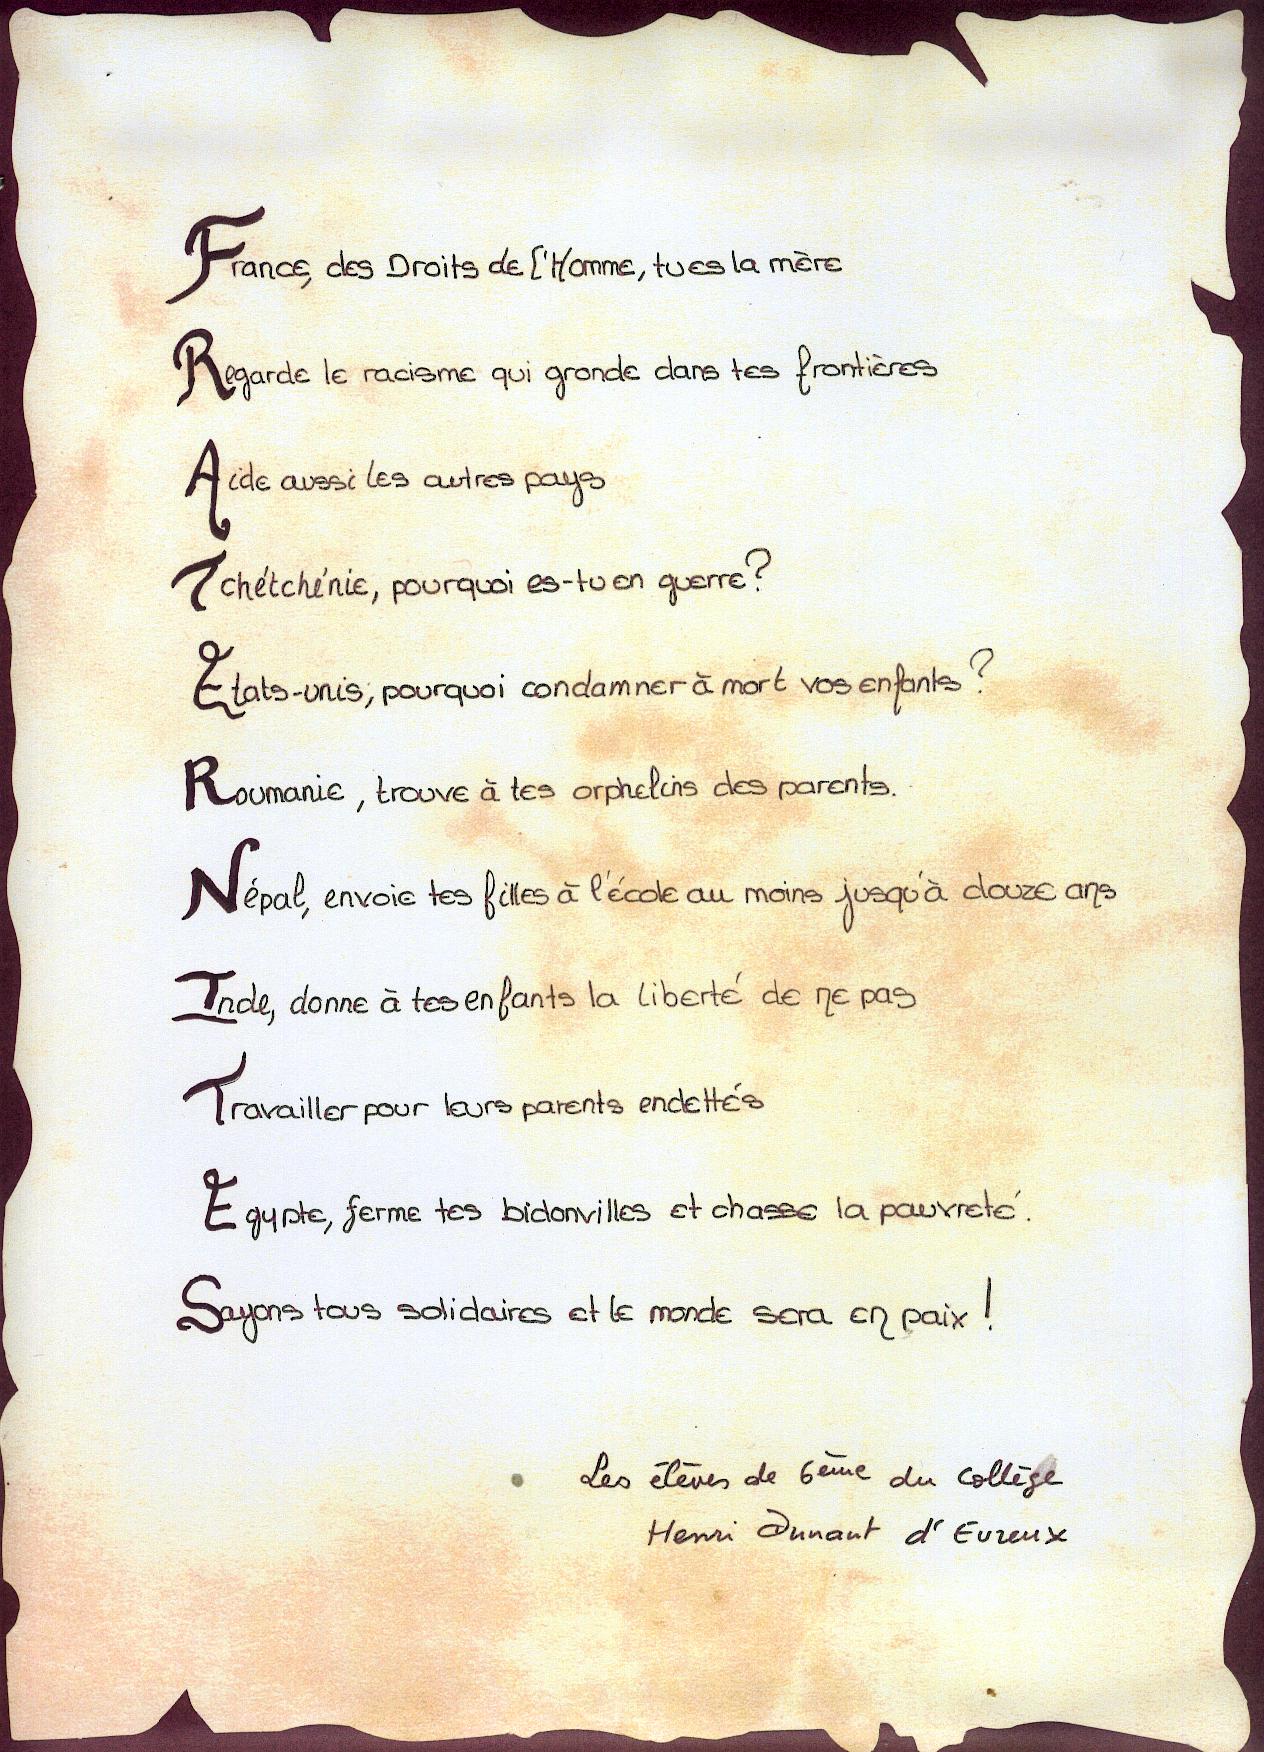 France, des Droits de l'Homme, tu es la mère
Regarde le racisme qui gronde dans tes frontières
Aide aussi les autres pays
Tchétchénie, pourquoi es-tu en guerre?
Etats-unis, pourquoi condamner à mort vos enfants?
Roumanie, trouve à tes orphelins des parents.
Népal, envoie tes filles à l'école au moins jusqu'à douze ans
Inde, donne à tes enfants la liberté de ne pas
Travailler pour leurs parents endettés
Egypte, ferme tes bidonvilles et chasse la pauvreté.
Sayons tous solidaires et le monde sera en paix!
Les élèves de 6ème du collège
Henri Dunant d'Evreux